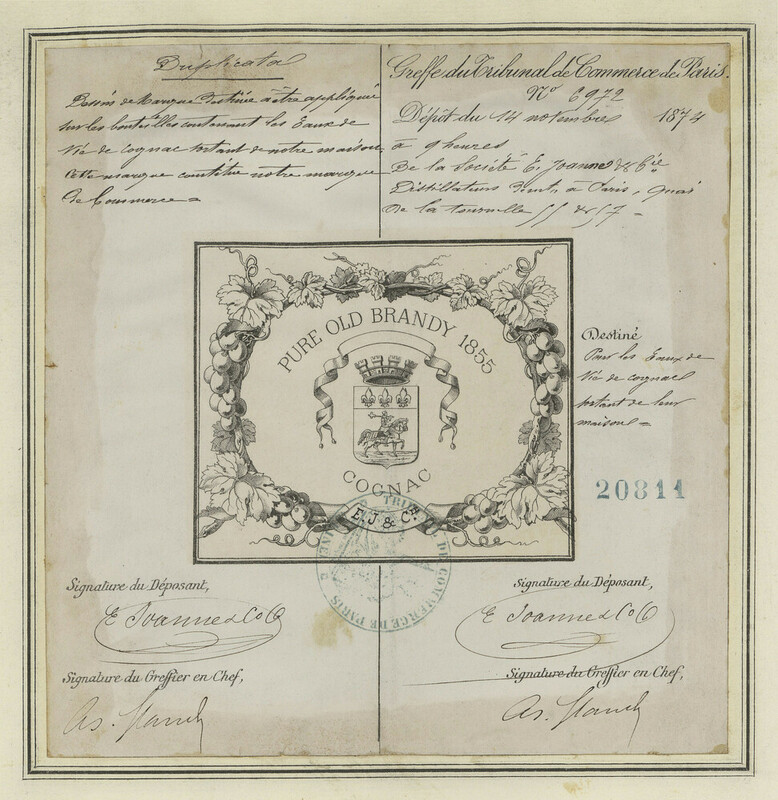 Duplicata
Dessin de Marque Destinée à être appliquée
sur les bouteilles contenant les Eaux de
Vie de cognac sortant de notre maison,
Cette marque constitue notre marque
de Commerce =
Greffe du Tribunal de Commerce de Paris.
No 6972
Dépôt du 14 novembre 1874
à 9 heures
De la Société E. Joanne & Cie
Distillateurs Dt, à Paris, Quai
De la tournelle 55 & 57 =
PURE OLD BRANDY 1855
COGNAC
E. J & Cie
Destiné
Pour les Eaux de
Vie de cognac
sortant de leur
maison =
20811
TRIBUNAL DE COMMERCE DE PARIS
Signature du Déposant,
E Joanne & Co
Signature du Greffier en Chef,
Signature du Déposant,
E Joanne & Co
Signature du Greffier en Chef,